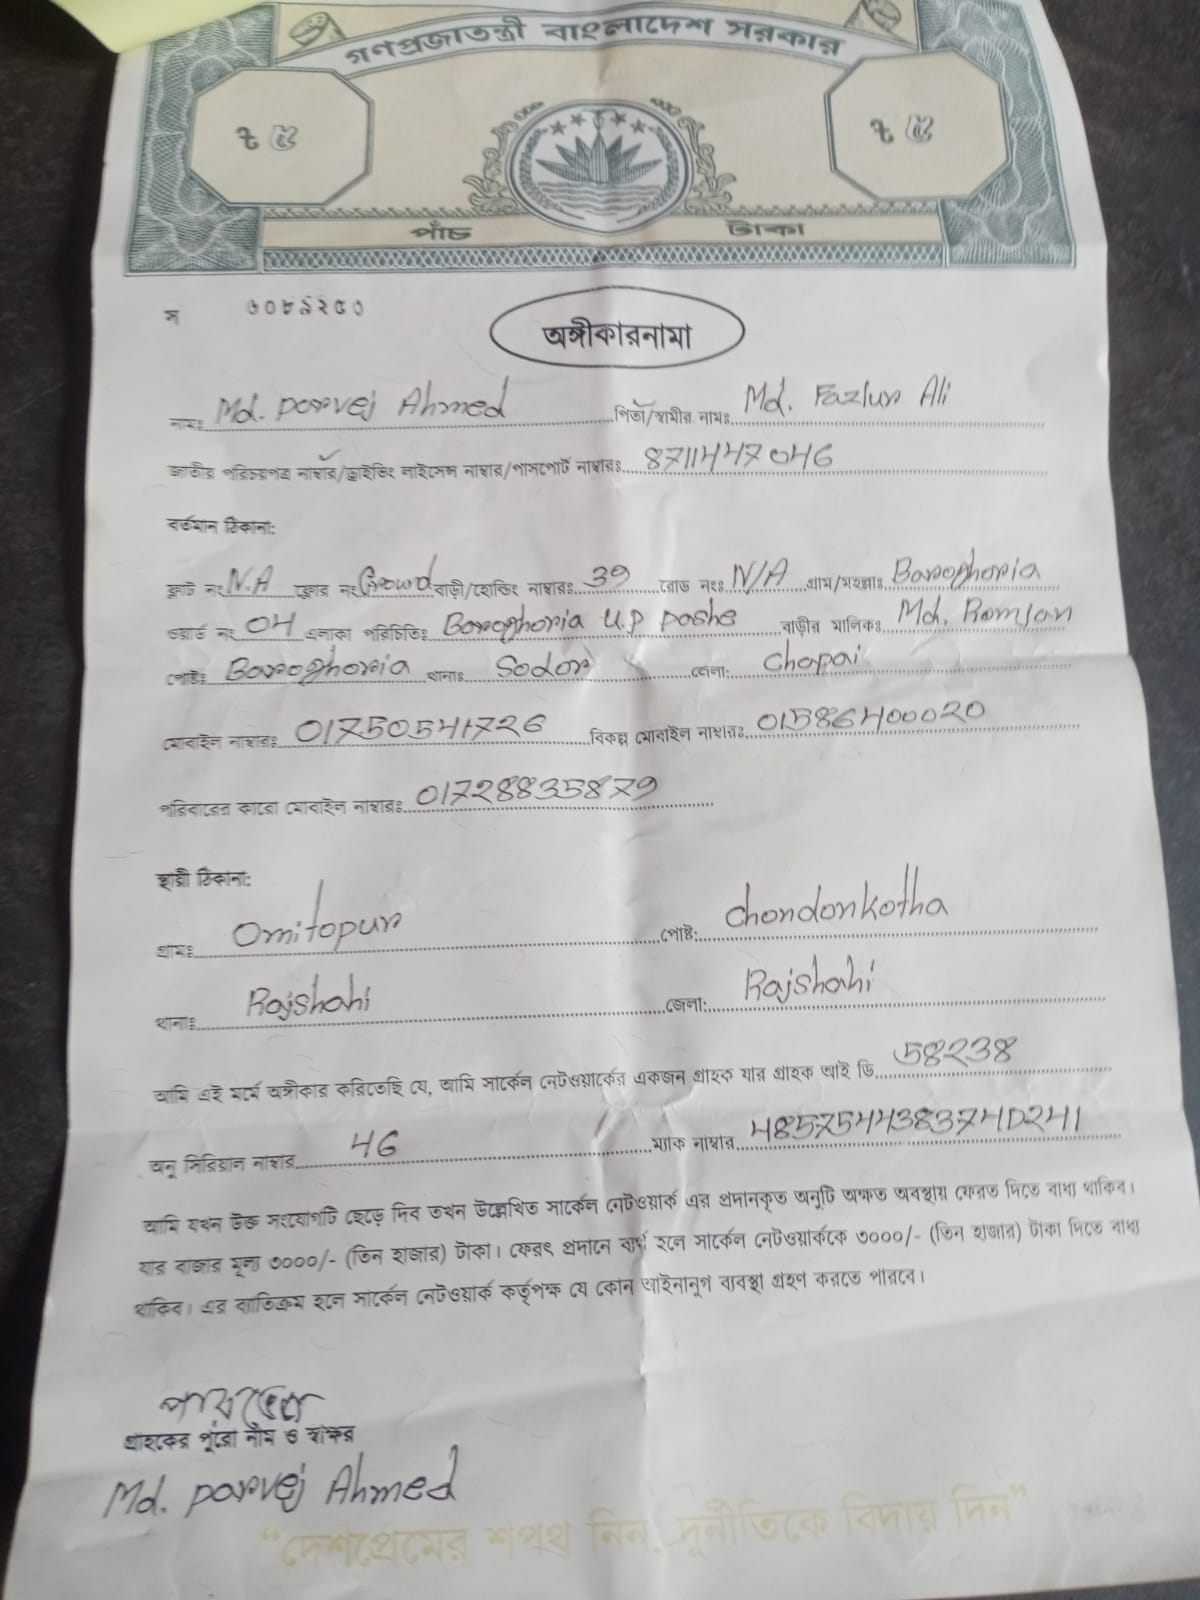 গণপ্রজাতন্ত্রী বাংলাদেশ সরকার
৳ ৫ ৳ ৫
পাঁচ টাকা
স ৩০৮৯২৫০
অঙ্গীকারনামা
নামঃ Md. Parvej Ahmed পিতা/স্বামীর নামঃ Md. Fazlur Ali
জাতীয় পরিচয়পত্র নাম্বার/ড্রাইভিং লাইসেন্স নাম্বার/পাসপোর্ট নাম্বারঃ 8711447046
বর্তমান ঠিকানা:
ফ্লাট নং N.A ফ্লোর নং Growd বাড়ী/হোল্ডিং নাম্বারঃ 39 রোড নংঃ N/A গ্রাম/মহল্লাঃ Baroghoria
ওয়ার্ড নং 04 এলাকা পরিচিতিঃ Baroghoria U.P pashe বাড়ীর মালিকঃ Md. Romjan
পোষ্টঃ Baroghoria থানাঃ Sodor জেলা: Chapai
মোবাইল নাম্বারঃ 01750541726 বিকল্প মোবাইল নাম্বারঃ 01586400020
পরিবারের কারো মোবাইল নাম্বারঃ 01728835879
স্থায়ী ঠিকানা:
গ্রামঃ Omitopur পোষ্ট: Chondonkotha
থানাঃ Rajshahi জেলা: Rajshahi
আমি এই মর্মে অঙ্গীকার করিতেছি যে, আমি সার্কেল নেটওয়ার্কের একজন গ্রাহক যার গ্রাহক আই ডি 58238
অনু সিরিয়াল নাম্বার 46 ম্যাক নাম্বার 485754438374D241
আমি যখন উক্ত সংযোগটি ছেড়ে দিব তখন উল্লেখিত সার্কেল নেটওয়ার্ক এর প্রদানকৃত অনুটি অক্ষত অবস্থায় ফেরত দিতে বাধ্য থাকিব।
যার বাজার মূল্য ৩০০০/- (তিন হাজার) টাকা। ফেরৎ প্রদানে ব্যর্থ হলে সার্কেল নেটওয়ার্ককে ৩০০০/- (তিন হাজার) টাকা দিতে বাধ্য
থাকিব। এর ব্যতিক্রম হলে সার্কেল নেটওয়ার্ক কর্তৃপক্ষ যে কোন আইনানুগ ব্যবস্থা গ্রহণ করতে পারবে।
পারভেজ
গ্রাহকের পুরো নাম ও স্বাক্ষর
Md. Parvej Ahmed
“দেশপ্রেমের শপথ নিন, দুর্নীতিকে বিদায় দিন”